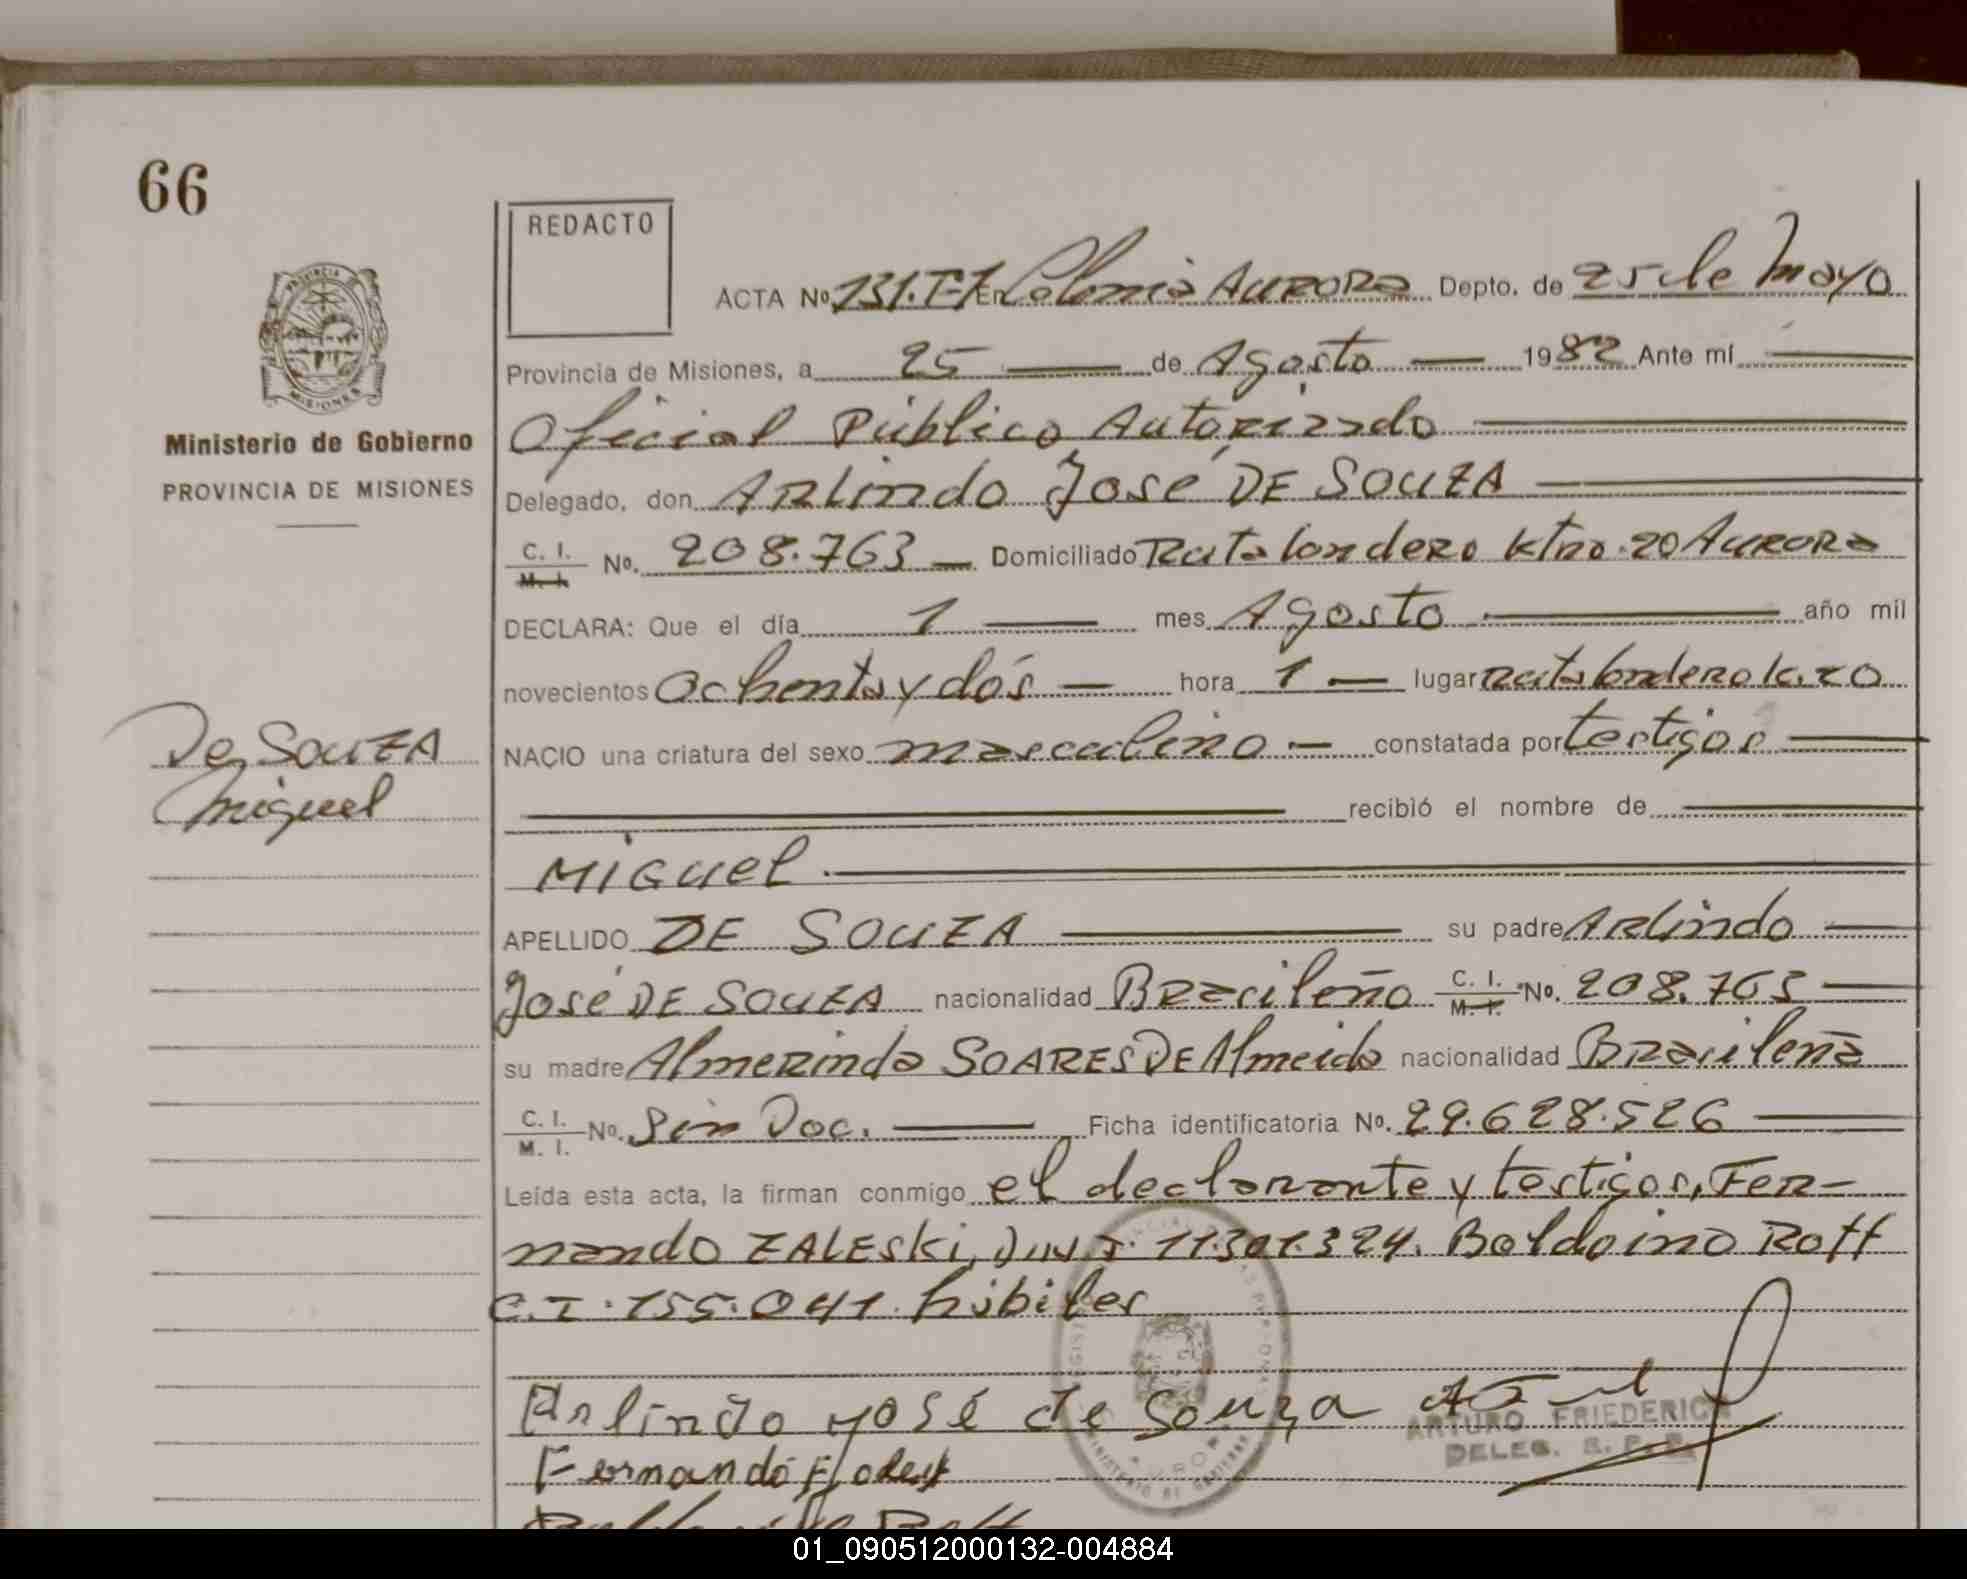 66
REDACTO
PROVINCIA
MISIONES
Ministerio de Gobierno
PROVINCIA DE MISIONES
ACTA No. 131.T-1 En Colonia AURORA Depto. de 25 de Mayo
Provincia de Misiones, a 25 de Agosto 1982 Ante mí
Oficial Público Autorizado
Delegado, don ARlindo José DE SOUZA
C. I. M. I. No. 208.763 Domiciliado Ruta londero Ktro. 20 AURORA
DECLARA: Que el día 1 mes Agosto año mil
novecientos Ochenta y dós hora 1 lugar Ruta londero k.20
De SOUZA
NACIO una criatura del sexo masculino constatada por testigos
Miguel
recibió el nombre de
MIGUEL.
APELLIDO DE SOUZA su padre ARlindo
José DE SOUZA nacionalidad BRasileño C. I. M. I. No. 208.763
su madre AlmeRinda SOARES DE Almeida nacionalidad BRasileña
C. I. M. I. No. Sin Doc. Ficha identificatoria No. 29.628.526
Leída esta acta, la firman conmigo el declarante y testigos, FeR-
nando ZALESKi, D.N.I. 11.301.324. Baldoino Roff
C.I. 155.041. hábiles
Arlindo José de Souza
ARTURO FRIEDERICH
DELEG. R. P. P.
Fernando
01_090512000132-004884